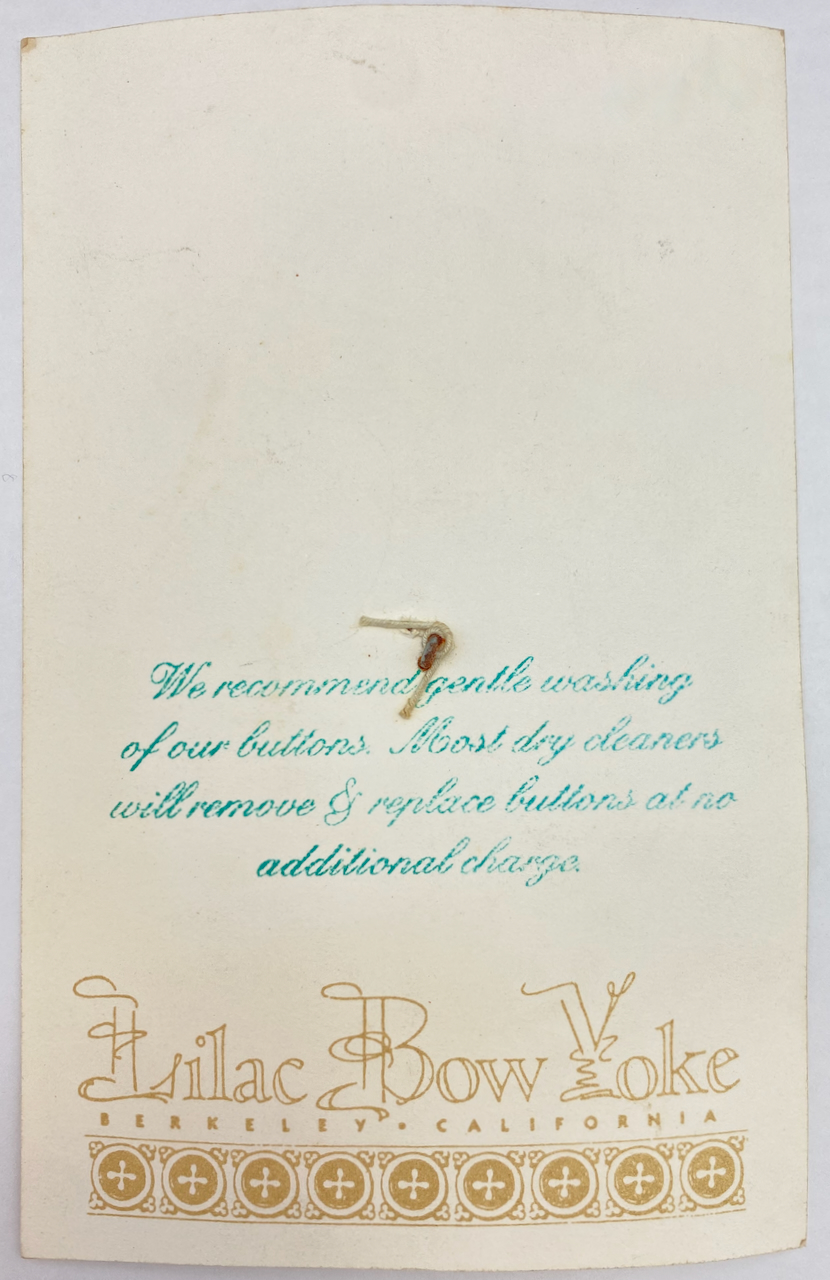 We recommend gentle washing
of our buttons. Most dry cleaners
will remove & replace buttons at no
additional charge.
Lilac Bow Yoke
BERKELEY • CALIFORNIA